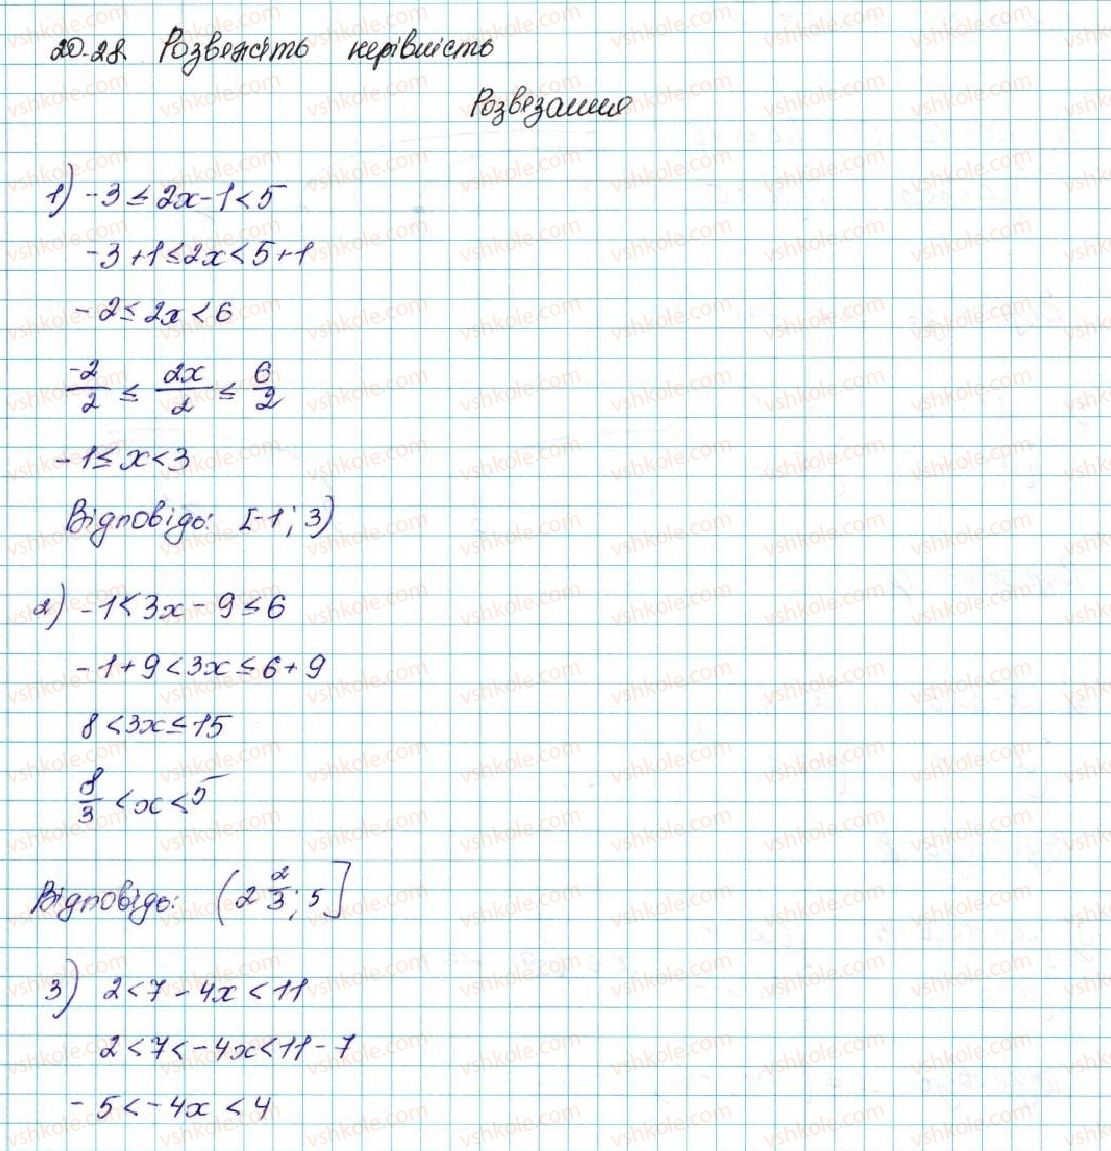 20.28. Розвяжіть нерівність
Розвязання
1) -3 ≤ 2x - 1 < 5
-3 + 1 ≤ 2x < 5 + 1
-2 ≤ 2x < 6
-2/2 ≤ 2x/2 ≤ 6/2
-1 ≤ x < 3
Відповідь: [-1; 3)
2) -1 < 3x - 9 ≤ 6
-1 + 9 < 3x ≤ 6 + 9
8 < 3x ≤ 15
8/3 < x ≤ 5
Відповідь: (2 2/3; 5]
3) 2 < 7 - 4x < 11
2 < 7 < -4x < 11 - 7
-5 < -4x < 4